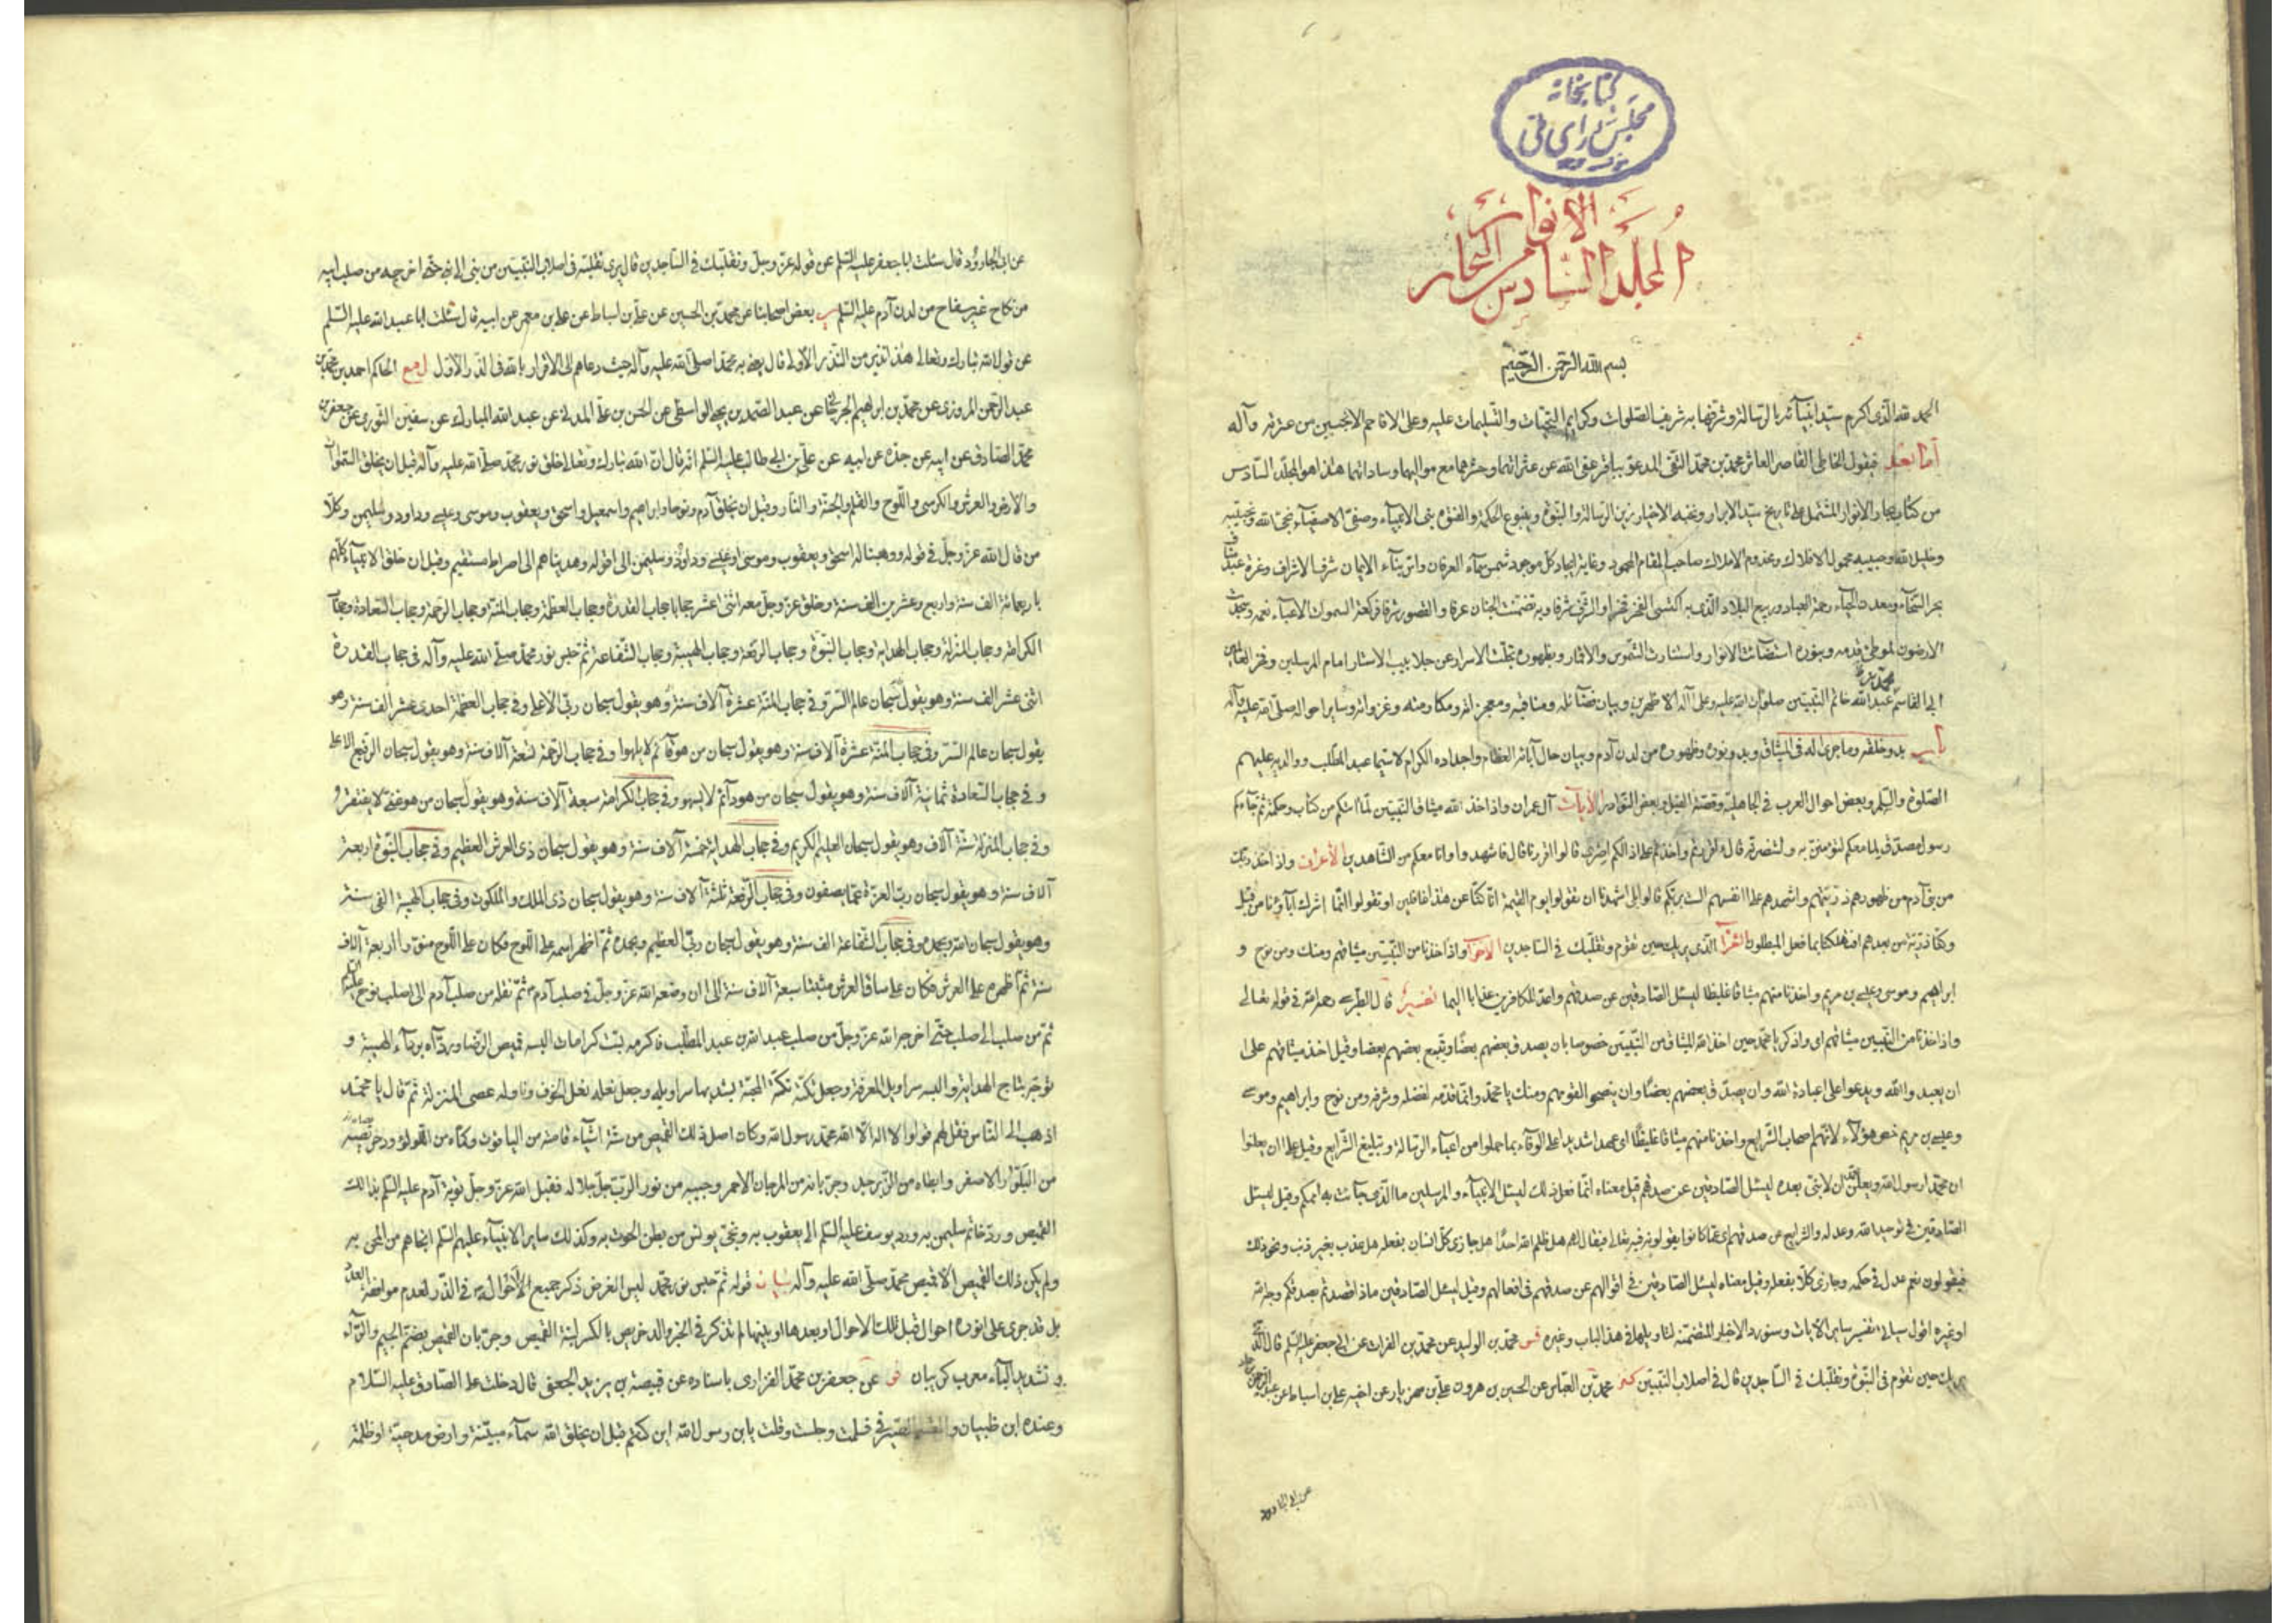 كتابخانه
مجلس شورای ملی
المجلد السادس
البحار الانوار
بسم الله الرحمن الرحيم
الحمد لله الذى اكرم سيد انبيائه بالرسالة وشرفها به شريف الصلوات وكرايم التحيات والتسليمات عليه وعلى الاقاحم الانجبين من عترته وآله
اما بعد فيقول الخاطى القاصر العاثر محمد بن محمد التقى المدعو بباقر عفى الله عن عثراتهما وحشرهما مع مواليهما وساداتهما هذا هو المجلد السادس
من كتاب بحار الانوار المشتمل على تاريخ سيد الابرار ونخبة الاخيار زين الرسالة والنبوة وينبوع الحكمة والفتوة نبى الانبياء وصفى الاصفياء نجى الله ونجيبه
وخليل الله وحبيبه محمول الافلاك ومخدوم الاملاك صاحب المقام المحمود وغاية ايجاد كل موجود شمس سماء العرفان واس بناء الايمان شرف الاشراف وغرة عبد مناف
بحر السخاء ومعدن الحياء رحمة العباد وربيع البلاد الذى به اكتسى الفخر فخرا والشرف شرفا وبه تضمنت الجنان غرفا والقصور شرفا فركعت السموات لاعباء نعمه وسجدت
الارضون لموطئ قدمه وبنوره استضاءت الانوار واستنارت الشموس والاقمار وبظهوره تجلت الاسرار عن جلابيب الاستار امام المرسلين وفخر العالمين
ابى القاسم محمد بن عبد الله خاتم النبيين صلوات الله عليه وعلى آله الاطهرين وبيان فضائله ومناقبه ومعجزاته ومكارمه وغزواته وساير احواله صلى الله عليه وآله
باب بدو خلقه وما جرى له فى الميثاق وبدو نوره وظهوره من لدن آدم وبيان حال آبائه العظام واجداده الكرام لا سيما عبد المطلب ووالديه عليهم
الصلوة والسلام وبعض احوال العرب فى الجاهلية وقصة الفيل وبعض النوادر الآيات آل عمران واذ اخذ الله ميثاق النبيين لما آتيتكم من كتاب وحكمة ثم جاءكم
رسول مصدق لما معكم لتؤمنن به ولتنصرنه قال ءاقررتم واخذتم على ذلكم اصرى قالوا اقررنا قال فاشهدوا وانا معكم من الشاهدين الاعراف واذ اخذ ربك
من بنى آدم من ظهورهم ذريتهم واشهدهم على انفسهم الست بربكم قالوا بلى شهدنا ان تقولوا يوم القيمة انا كنا عن هذا غافلين او تقولوا انما اشرك آباؤنا من قبل
وكنا ذرية من بعدهم افتهلكنا بما فعل المبطلون الشعرا الذى يريك حين تقوم وتقلبك فى الساجدين الاحزاب واذ اخذنا من النبيين ميثاقهم ومنك ومن نوح و
ابراهيم وموسى وعيسى بن مريم واخذنا منهم ميثاقا غليظا ليسئل الصادقين عن صدقهم واعد للكافرين عذابا اليما تفسير قال الطبرسى رحمه الله فى قوله تعالى
واذ اخذنا من النبيين ميثاقهم اى واذكر يا محمد حين اخذ الله الميثاق من النبيين خصوصا بان يصدق بعضهم بعضا ويتبع بعضهم بعضا وقيل اخذ ميثاقهم على
ان يعبدوا الله ويدعوا الى عبادة الله وان يصدق بعضهم بعضا وان ينصحوا لقومهم ومنك يا محمد وانما قدمه لفضله وشرفه ومن نوح وابراهيم وموسى
وعيسى بن مريم خص هؤلاء لانهم اصحاب الشرايع واخذنا منهم ميثاقا غليظا اى عهدا شديدا على الوفاء بما حملوا من اعباء الرسالة وتبليغ الشرايع وقيل على ان يعلنوا
ان محمدا رسول الله ويعلن محمد ان لا نبى بعده ليسئل الصادقين عن صدقهم قيل معناه انما فعل ذلك ليسئل الانبياء والمرسلين ما الذى جاءت به اممكم وقيل ليسئل
الصادقين فى توحيد الله وعدله والشرايع عن صدقهم اى عما كانوا يقولونه فيه تعالى فيقال لهم هل ظلم الله احدا هل جازى كل انسان بفعله هل عذب بغير ذنب ونحو ذلك
فيقولون نعم عدل فى حكمه وجازى كلا بفعله وقيل معناه ليسئل الصادقين فى اقوالهم عن صدقهم فى افعالهم وقيل ليسئل الصادقين ماذا قصدتم بصدقكم وجه الله
او غيره اقول سيأتى تفسير ساير الآيات وسنورد الاخبار المتضمنة لتأويلها فى هذا الباب وغيره فس محمد بن الوليد عن محمد بن الفرات عن ابى جعفر عليه السلم قال الذى
يريك حين تقوم فى النبوة وتقلبك فى الساجدين قال فى اصلاب النبيين كنز محمد بن العباس عن الحسين بن هرون عن على بن مهزيار عن اخيه عن ابن اسباط عن عبد الرحمن بن حماد
عن ابى الجارود
عن ابى الجارود قال سئلت ابا جعفر عليه السلم عن قوله عز وجل وتقلبك فى الساجدين قال يرى تقلبه فى اصلاب النبيين من نبى الى نبى حتى اخرجه من صلب ابيه
من نكاح غير سفاح من لدن آدم عليه السلم ير بعض اصحابنا عن محمد بن الحسين عن على بن اسباط عن على بن معمر عن ابيه قال سئلت ابا عبد الله عليه السلم
عن قول الله تبارك وتعالى هذا نذير من النذر الاولى قال يعنى به محمدا صلى الله عليه وآله حيث دعاهم الى الاقرار بالله فى الذر الاول ل مع الحاكم احمد بن محمد بن
عبد الرحمن المروزى عن محمد بن ابراهيم الجرجانى عن عبد الصمد بن يحيى الواسطى عن الحسن بن على المدنى عن عبد الله المبارك عن سفين الثورى عن جعفر بن
محمد الصادق عن ابيه عن جده عن ابيه عن على بن ابى طالب عليه السلم انه قال ان الله تبارك وتعالى خلق نور محمد صلى الله عليه وآله قبل ان يخلق السموات
والارض والعرش والكرسى واللوح والقلم والجنة والنار وقبل ان يخلق آدم ونوحا وابراهيم واسمعيل واسحق ويعقوب وموسى وعيسى وداود وسليمن وكل
من قال الله عز وجل فى قوله ووهبنا له اسحق ويعقوب وموسى وعيسى وداود وسليمن الى قوله وهديناهم الى صراط مستقيم وقبل ان خلق الانبياء كلهم
باربعمائة الف سنة واربع وعشرين الف سنة وخلق عز وجل معه اثنى عشر حجابا حجاب القدرة وحجاب العظمة وحجاب المنة وحجاب الرحمة وحجاب السعادة وحجاب
الكرامة وحجاب المنزلة وحجاب الهداية وحجاب النبوة وحجاب الرفعة وحجاب الهيبة وحجاب الشفاعة ثم حبس نور محمد صلى الله عليه وآله فى حجاب القدرة
اثنى عشر الف سنة وهو يقول سبحان ربى الاعلى وفى حجاب العظمة احدى عشر الف سنة وهو
يقول سبحان عالم السر وفى حجاب المنة عشرة آلاف سنة وهو يقول سبحان من هو قائم لا يلهوا وفى حجاب الرحمة تسعة آلاف سنة وهو يقول سبحان الرفيع الاعلى
وفى حجاب السعادة ثمانية آلاف سنة وهو يقول سبحان من هو دائم لا يسهو وفى حجاب الكرامة سبعة آلاف سنة وهو يقول سبحان من هو غنى لا يفتقر و
وفى حجاب المنزلة ستة آلاف وهو يقول سبحان العليم الكريم وفى حجاب الهداية خمسة آلاف سنة وهو يقول سبحان ذى العرش العظيم وفى حجاب النبوة اربعة
آلاف سنة وهو يقول سبحان رب العزة عما يصفون وفى حجاب الرفعة ثلثة آلاف سنة وهو يقول سبحان ذى الملك والملكوت وفى حجاب الهيبة الفى سنة
وهو يقول سبحان الله وبحمده وفى حجاب الشفاعة الف سنة وهو يقول سبحان ربى العظيم وبحمده ثم اظهر اسمه على اللوح فكان على اللوح منورا اربعة آلاف
سنة ثم اظهره على العرش فكان على ساق العرش مثبتا سبعة آلاف سنة الى ان وضعه الله عز وجل فى صلب آدم ثم نقله من صلب آدم الى صلب نوح
ثم من صلب الى صلب حتى اخرجه الله عز وجل من صلب عبد الله بن عبد المطلب فاكرمه بست كرامات البسه قميص الرضا ورداه برداء الهيبة و
توجه بتاج الهداية والبسه سراويل المعرفة وجعل تكته تكة المحبة يشد بها سراويله وجعل نعله نعل الخوف وناوله عصى المنزلة ثم قال يا محمد
اذهب الى الناس فقل لهم قولوا لا اله الا الله محمد رسول الله وكان اصل ذلك القميص من ستة اشياء قامته من الياقوت وكماه من اللؤلؤ ودخريصه
من البلور الاصفر وابطاه من الزبرجد وجربانه من المرجان الاحمر وجيبه من نور الرب جل جلاله فقبل الله عز وجل توبة آدم عليه السلم بذلك
القميص ورد خاتم سليمن به ورد يوسف عليه السلم الى يعقوب به ونجى يونس من بطن الحوت به وكذلك ساير الانبياء عليهم السلم انجاهم من المحن به
ولم يكن ذلك القميص الا قميص محمد صلى الله عليه وآله بيان قوله ثم حبس نور محمد ليس الغرض ذكر جميع الاحوال
بل قد جرى على نوره احوال قبل تلك الاحوال او بعدها او بينها لم تذكر فى الخبر والدخريص بالكسر لبنة القميص وجربان القميص بضم الجيم والراء
وتشديد الباء معرب كريبان فر عن جعفر بن محمد الفزارى باسناده عن قبيصة بن يزيد الجعفى قال دخلت على الصادق عليه السلام
وعنده ابن ظبيان و الصيرفى فسلمت وجلست وقلت يا بن رسول الله اين كنتم قبل ان يخلق الله سماء مبنية وارض مدحية او ظلمة